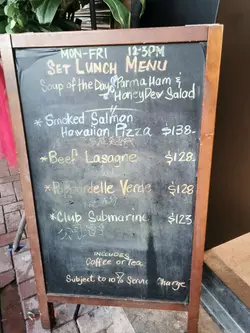 MON-FRI 12-3PM
SET LUNCH MENU
Soup of the Day & Parma Ham &
Honey Dew Salad
* Smoked Salmon
Hawaiian Pizza $138-
* Beef Lasagne $128-
* Verde $128
* Club Submarine $123
INCLUDES
Coffee or Tea
Subject to 10% Service Charge